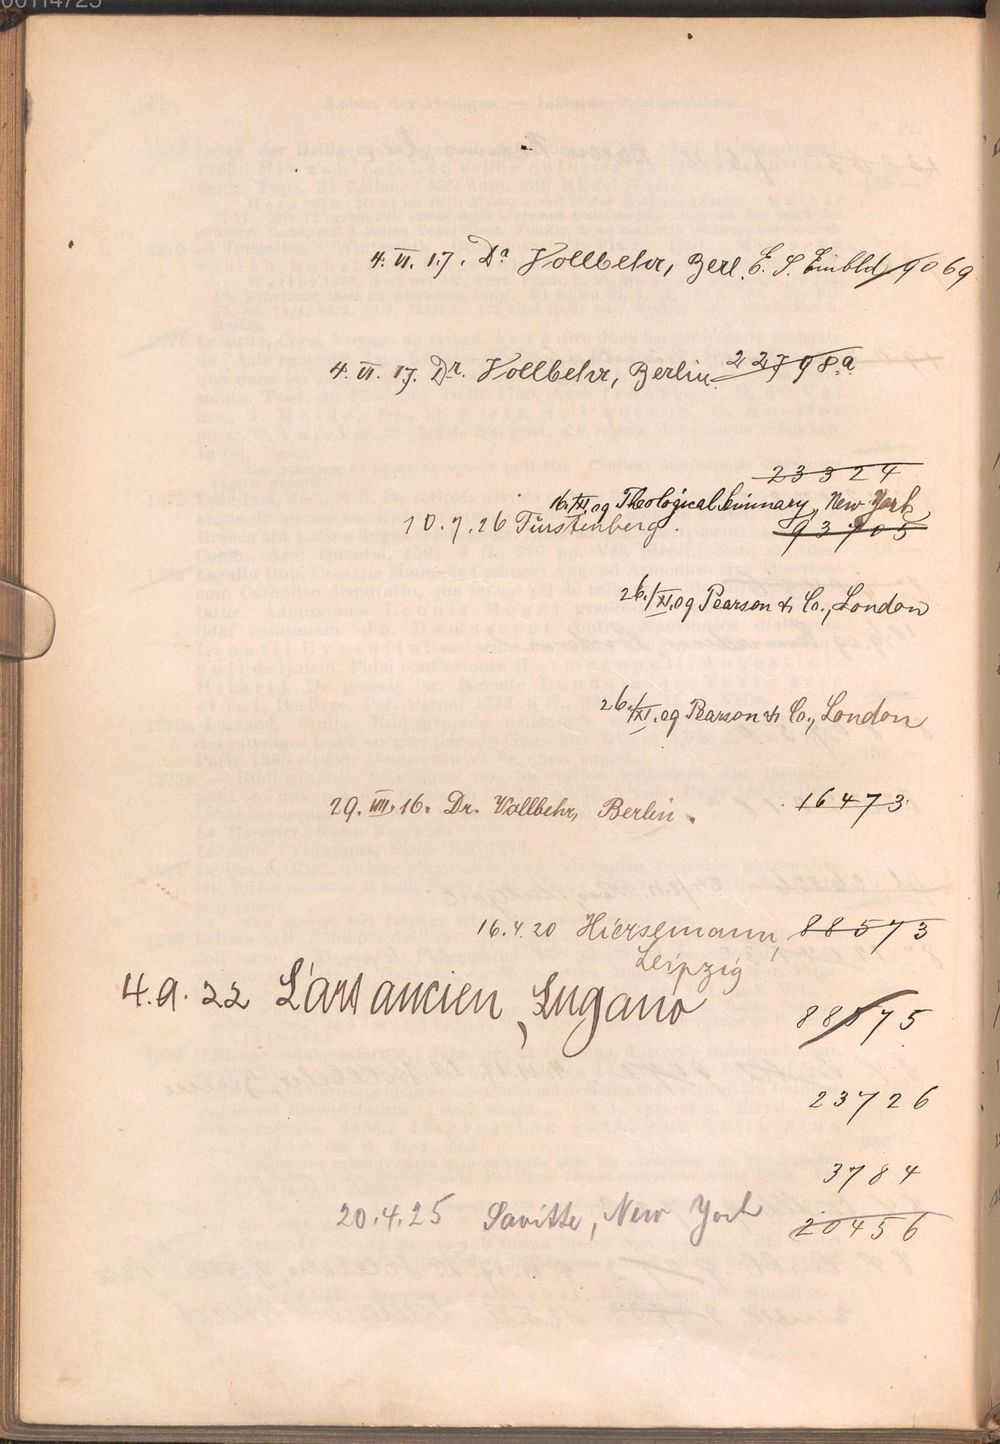 00114725
4. VI. 17. Dr Vollbehr, Berl. E. S. Einbld 9069
4. VI. 17. Dr. Vollbehr, Berlin. 22798a
23324
16./XI.09 Theological Seminary, New York
10.7.26 Fürstenberg. 93905
26./XI.09 Pearson & Co., London
26./XI.09 Pearson & Co., London
29. VIII. 16. Dr. Vollbehr, Berlin. 16473.
16.4.20 Hiersemann, 88573
Leipzig
4.9.22 L'art ancien, Lugano
88575
23726
3784
20.4.25 Savitte, New York 20456